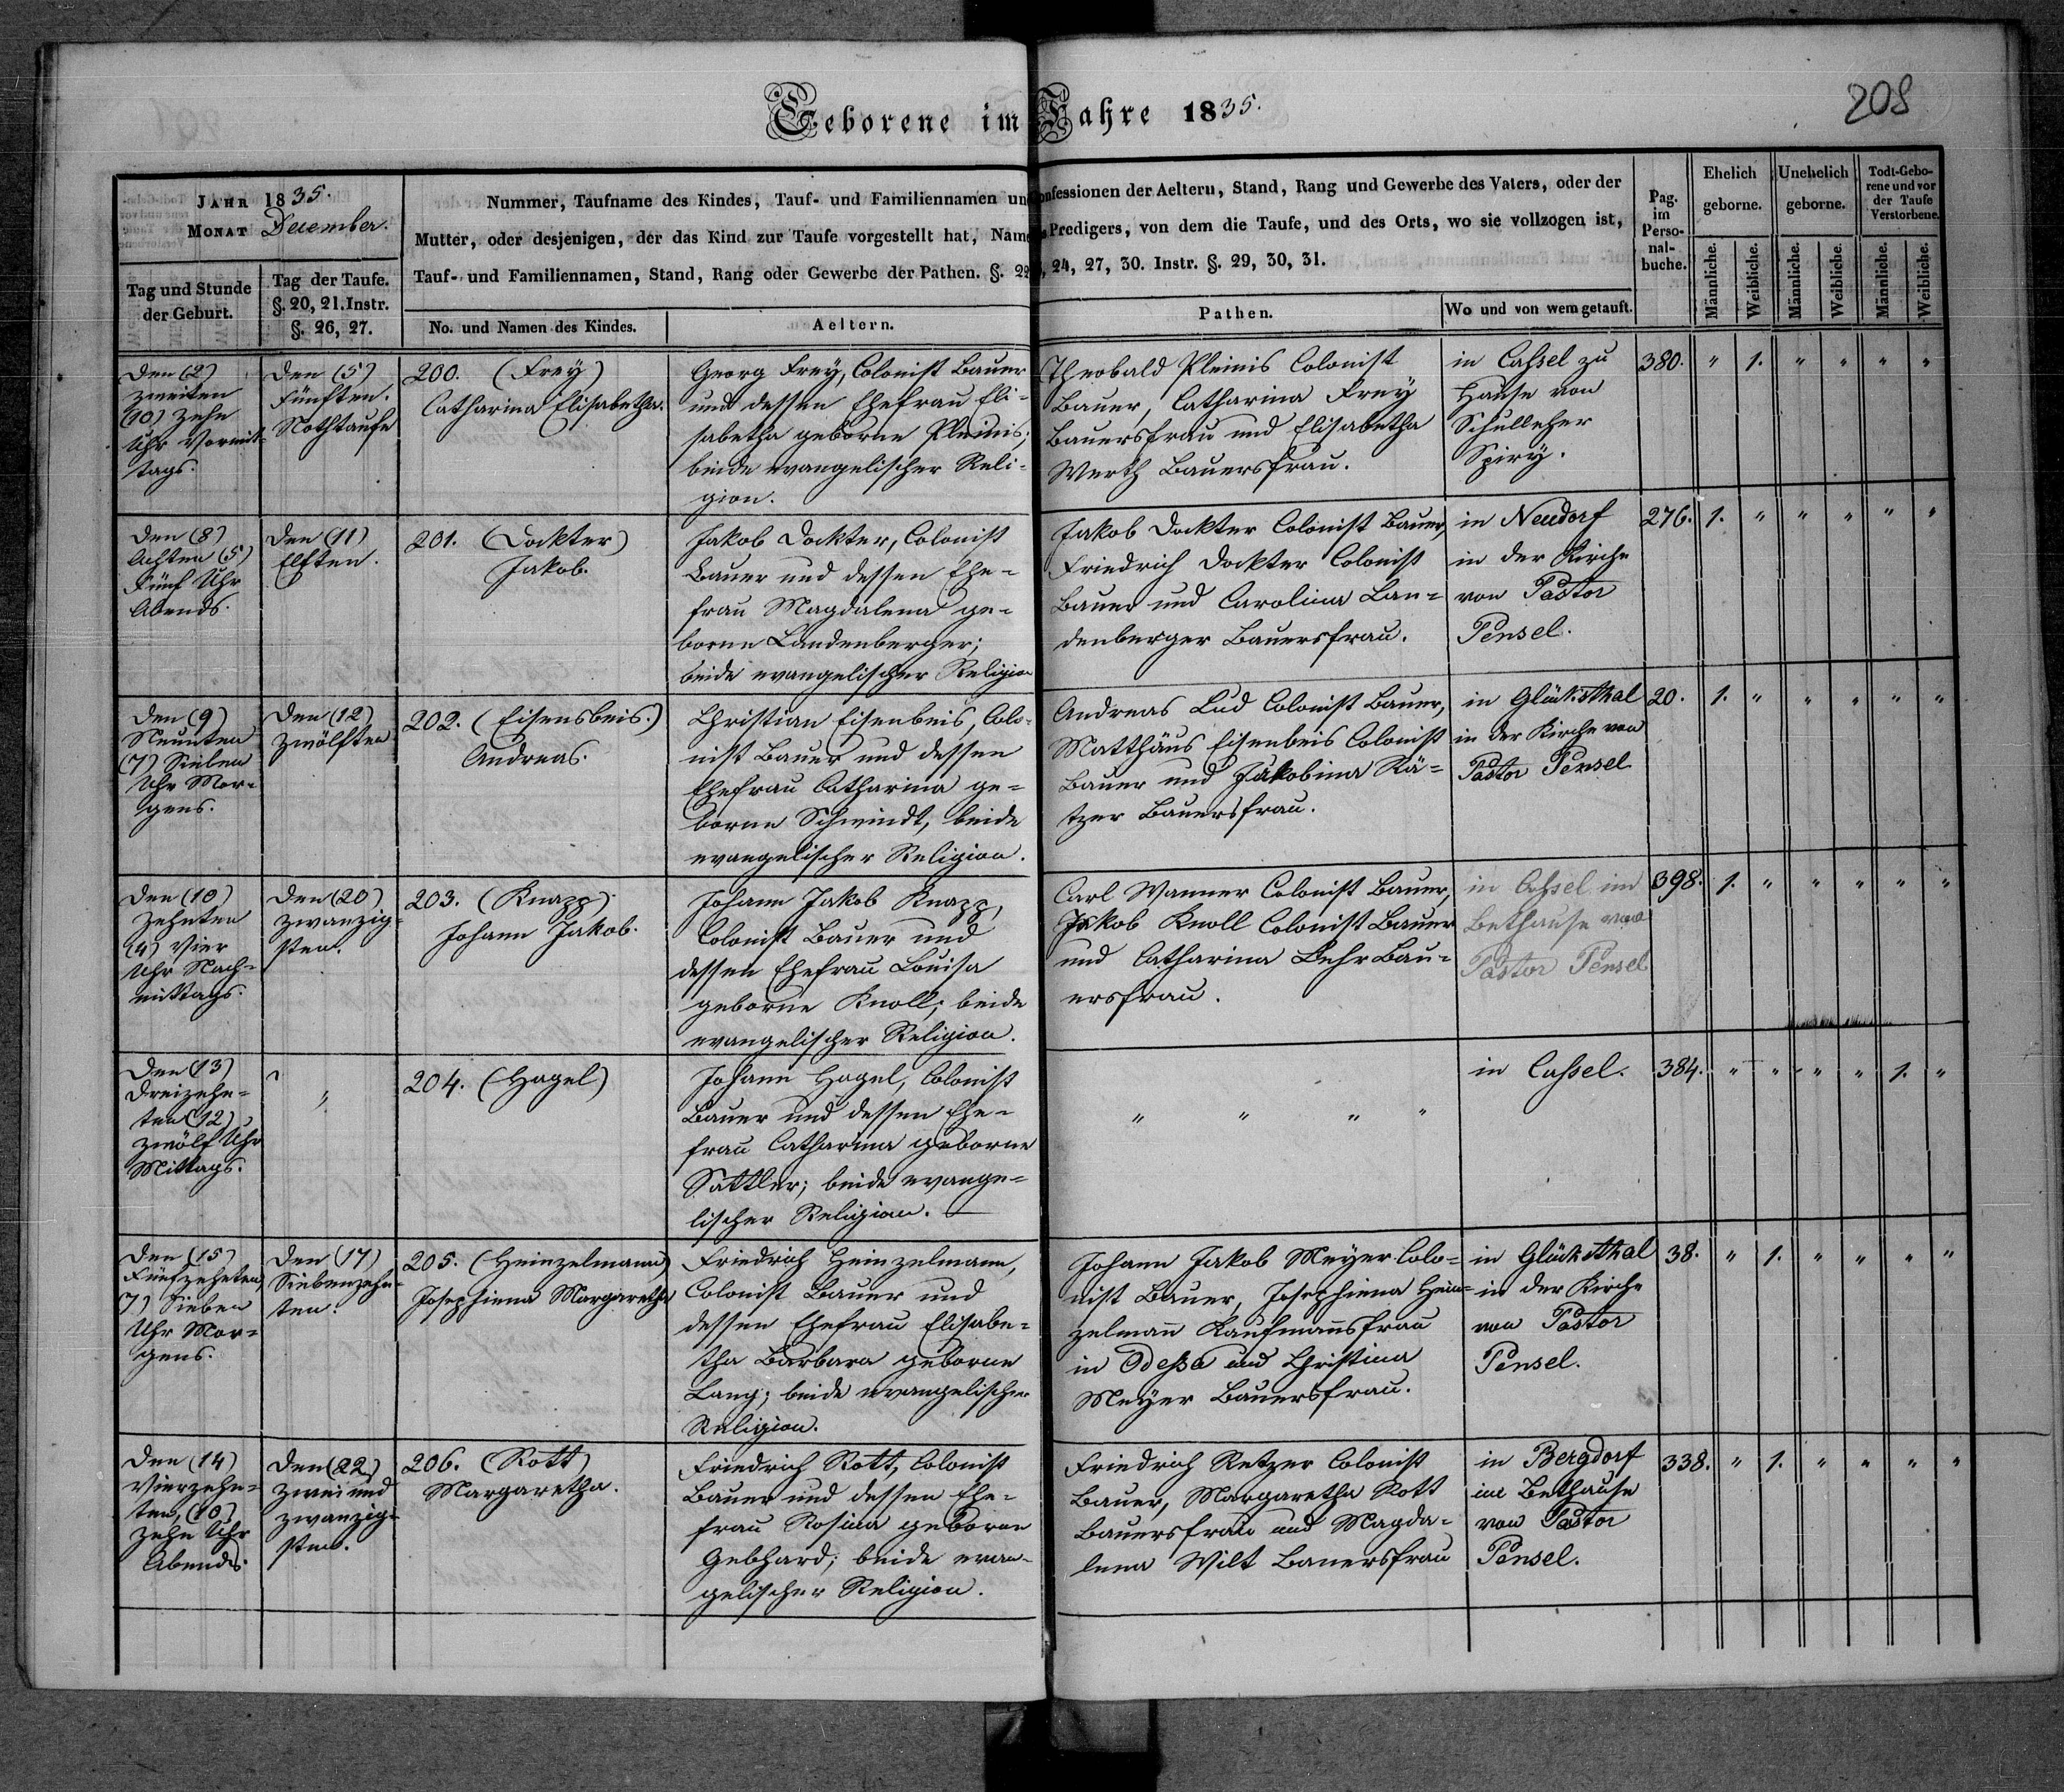 Geborene im Jahre 1835.
208
JAHR 1835.
MONAT December.
Nummer, Taufname des Kindes, Tauf- und Familiennamen und Confessionen der Aeltern, Stand, Rang und Gewerbe des Vaters, oder der
Mutter, oder desjenigen, der das Kind zur Taufe vorgestellt hat, Name des Predigers, von dem die Taufe, und des Orts, wo sie vollzogen ist,
Tauf- und Familiennamen, Stand, Rang oder Gewerbe der Pathen. §. 22, 24, 27, 30. Instr. §. 29, 30, 31.
Tag und Stunde
der Geburt.
Tag der Taufe.
§. 20, 21. Instr.
§. 26, 27.
No. und Namen des Kindes.
Aeltern.
Pathen.
Wo und von wem getauft.
Pag.
im
Perso-
nal-
buche.
Ehelich
geborne.
Unehelich
geborne.
Todt-Gebo-
rene und vor
der Taufe
Verstorbene.
Männliche.
Weibliche.
Männliche.
Weibliche.
Männliche.
Weibliche.
Den (2)
zweiten
(10) Zehn
Uhr Vormit-
tags.
Den (5)
Fünften.
Nothtaufe
200. (Frey)
Catharina Elisabetha.
Georg Frey, Colonist Bauer
und dessen Ehefrau Eli-
sabetha geborne Pleinis;
beide evangelischer Reli-
gion.
Theobald Pleinis Colonist
Bauer, Catharina Frey
Bauersfrau und Elisabetha
Werth Bauersfrau.
in Cassel zu
Hause von
Schulleher
Spiry.
380. " 1. " " " "
Den (8)
Achten (5)
Fünf Uhr
Abends.
Den (11)
Elften.
201. (Dockter)
Jakob.
Jakob Dockter, Colonist
Bauer und dessen Ehe-
frau Magdalena ge-
borne Landenberger;
beide evangelischer Religion
Jakob Dockter Colonist Bauer,
Friedrich Dockter Colonist
Bauer und Carolina Lan-
denberger Bauersfrau.
in Neudorf
in der Kirche
von Pastor
Pensel.
276. 1. " " " " "
Den (9)
Neunten
(7) Sieben
Uhr Mor-
gens.
Den (12)
Zwölften
202. (Eisensbeis.)
Andreas.
Christian Eisenbeis, Colo-
nist Bauer und dessen
Ehefrau Catharina ge-
borne Schwindt, beide
evangelischer Religion.
Andreas Lud Colonist Bauer,
Matthäus Eisenbeis Colonist
Bauer und Jakobina Rä-
tzer Bauersfrau.
in Glücksthal
in der Kirche von
Pastor Pensel
20. 1. " " " " "
Den (10)
Zehnten
(4) Vier
Uhr Nach-
mittags.
Den (20)
zwanzig-
sten.
203. (Knapp)
Johann Jakob.
Johann Jakob Knapp,
Colonist Bauer und
dessen Ehefrau Louisa
geborne Knoll; beide
evangelischer Religion.
Carl Wanner Colonist Bauer,
Jakob Knoll Colonist Bauer
und Catharina Fehr Bau-
ersfrau.
in Cassel im
Bethause von
Pastor Pensel
398. 1. " " " " "
Den (13)
Dreizehn-
ten (12)
zwölf Uhr
Mittags.
"
204. (Hagel)
Johann Hagel, Colonist
Bauer und dessen Ehe-
frau Catharina geborne
Sattler; beide evange-
lischer Religion.
" " " "
in Cassel.
384. " " " " 1. "
Den (15)
Fünfzehnten,
7) Sieben
Uhr Mor-
gens.
Den (17)
Siebenzehn-
ten.
205. (Heinzelmann)
Josephiena Margaretha
Friedrich Heinzelmann,
Colonist Bauer und
dessen Ehefrau Elisabe-
tha Barbara geborne
Lang; beide evangelischer
Religion.
Johann Jakob Meyer Colo-
nist Bauer, Josephiena Hein-
zelmann Kaufmannsfrau
in Odessa und Christina
Meyer Bauersfrau.
in Glücksthal
in der Kirche
von Pastor
Pensel.
38. " 1. " " " "
Den (14)
Vierzehn-
ten, (10)
Zehn Uhr
Abends.
Den (22)
zwei und
zwanzig-
sten.
206. (Rott)
Margaretha.
Friedrich Rott, Colonist
Bauer und dessen Ehe-
frau Rosina geborne
Gebhard; beide evan-
gelischer Religion.
Friedrich Retzer Colonist
Bauer, Margaretha Rott
Bauersfrau und Magda-
lena Wilt Bauersfrau
in Bergdorf
im Bethause
von Pastor
Pensel.
338. " 1. " " " "